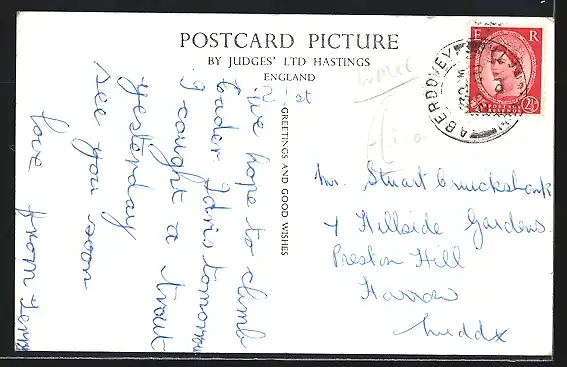 POSTCARD PICTURE
BY JUDGES' LTD HASTINGS
ENGLAND
GREETINGS AND GOOD WISHES
We hope to climb
Cader Idris tomorrow
I caught a trout
yesterday
see you soon
love from
Mr. Stuart Cruickshank
4 Hillside Gardens
Preston Hill
Harrow
Middx
E R
POSTAGE REVENUE
2½
ABERDOVEY